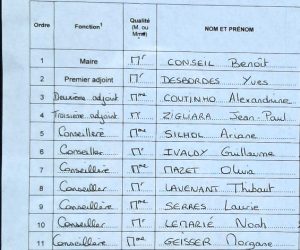 Ordre Fonction¹ Qualité (M. ou Mme) NOM ET PRÉNOM
1 Maire Mr CONSEIL Benoît
2 Premier adjoint Mr DESBORDES Yves
3 Deuxième adjoint Mme COUTINHO Alexandrine
4 Troisième adjoint Mr ZIGLIARA Jean-Paul
5 Conseillère Mme SILHOL Ariane
6 Conseiller Mr IVALDY Guillaume
7 Conseillère Mme MAZET Olivia
8 Conseiller Mr LAVENANT Thibaut
9 Conseillère Mme SERRES Laurie
10 Conseiller Mr LEMARIÉ Noah
11 Conseillère Mme GEISSER Morgane